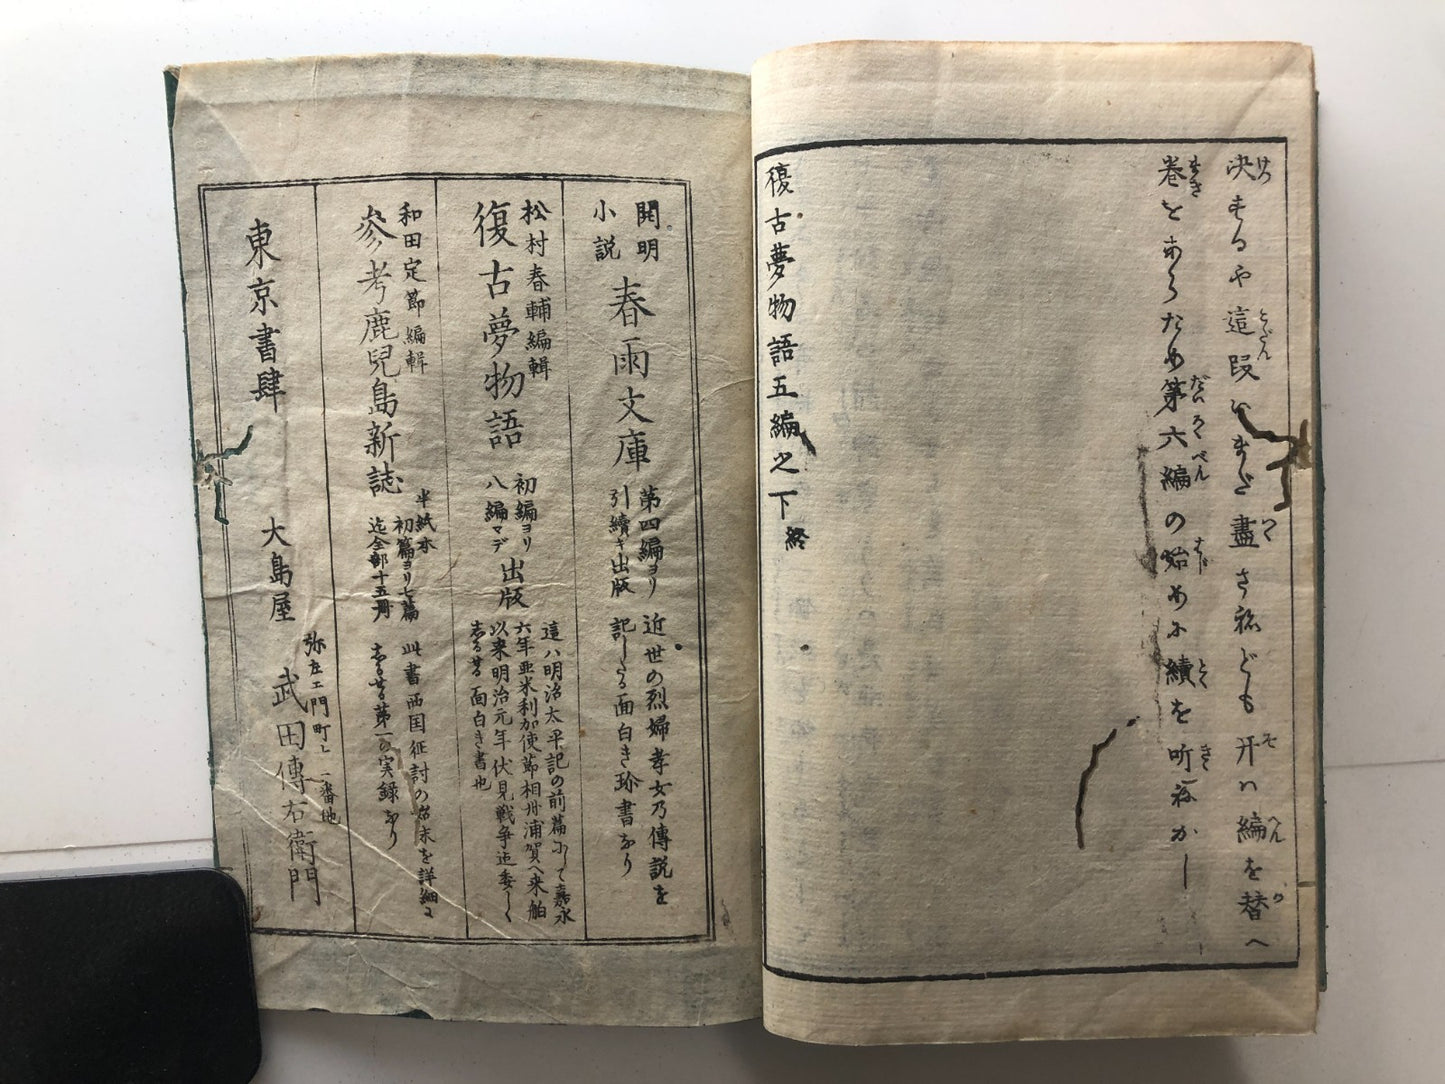 決するや這段はまだ盡さねども开ハ編を替へ
巻をあらため第六編の始めに續を听ねかし
復古夢物語五編之下終
開明小説
春雨文庫
第四編ヨリ
引續キ出版
近世の烈婦孝女乃傳説を
記したる面白き珍書なり
松村春輔編輯
復古夢物語
初編ヨリ
八編マデ
出版
這ハ明治太平記の前篇にして嘉永
六年亜米利加使節相州浦賀へ来舶
以来明治元年伏見戦争迄委しく
志るせる面白き書也
和田定節編輯
參考鹿兒島新誌
半紙本
初篇ヨリ七篇
迄全部十五冊
此書西国征討の始末を詳細に
志るせる第一の実録なり
東京書肆
大島屋
弥左エ門町十一番地
武田傳右衛門